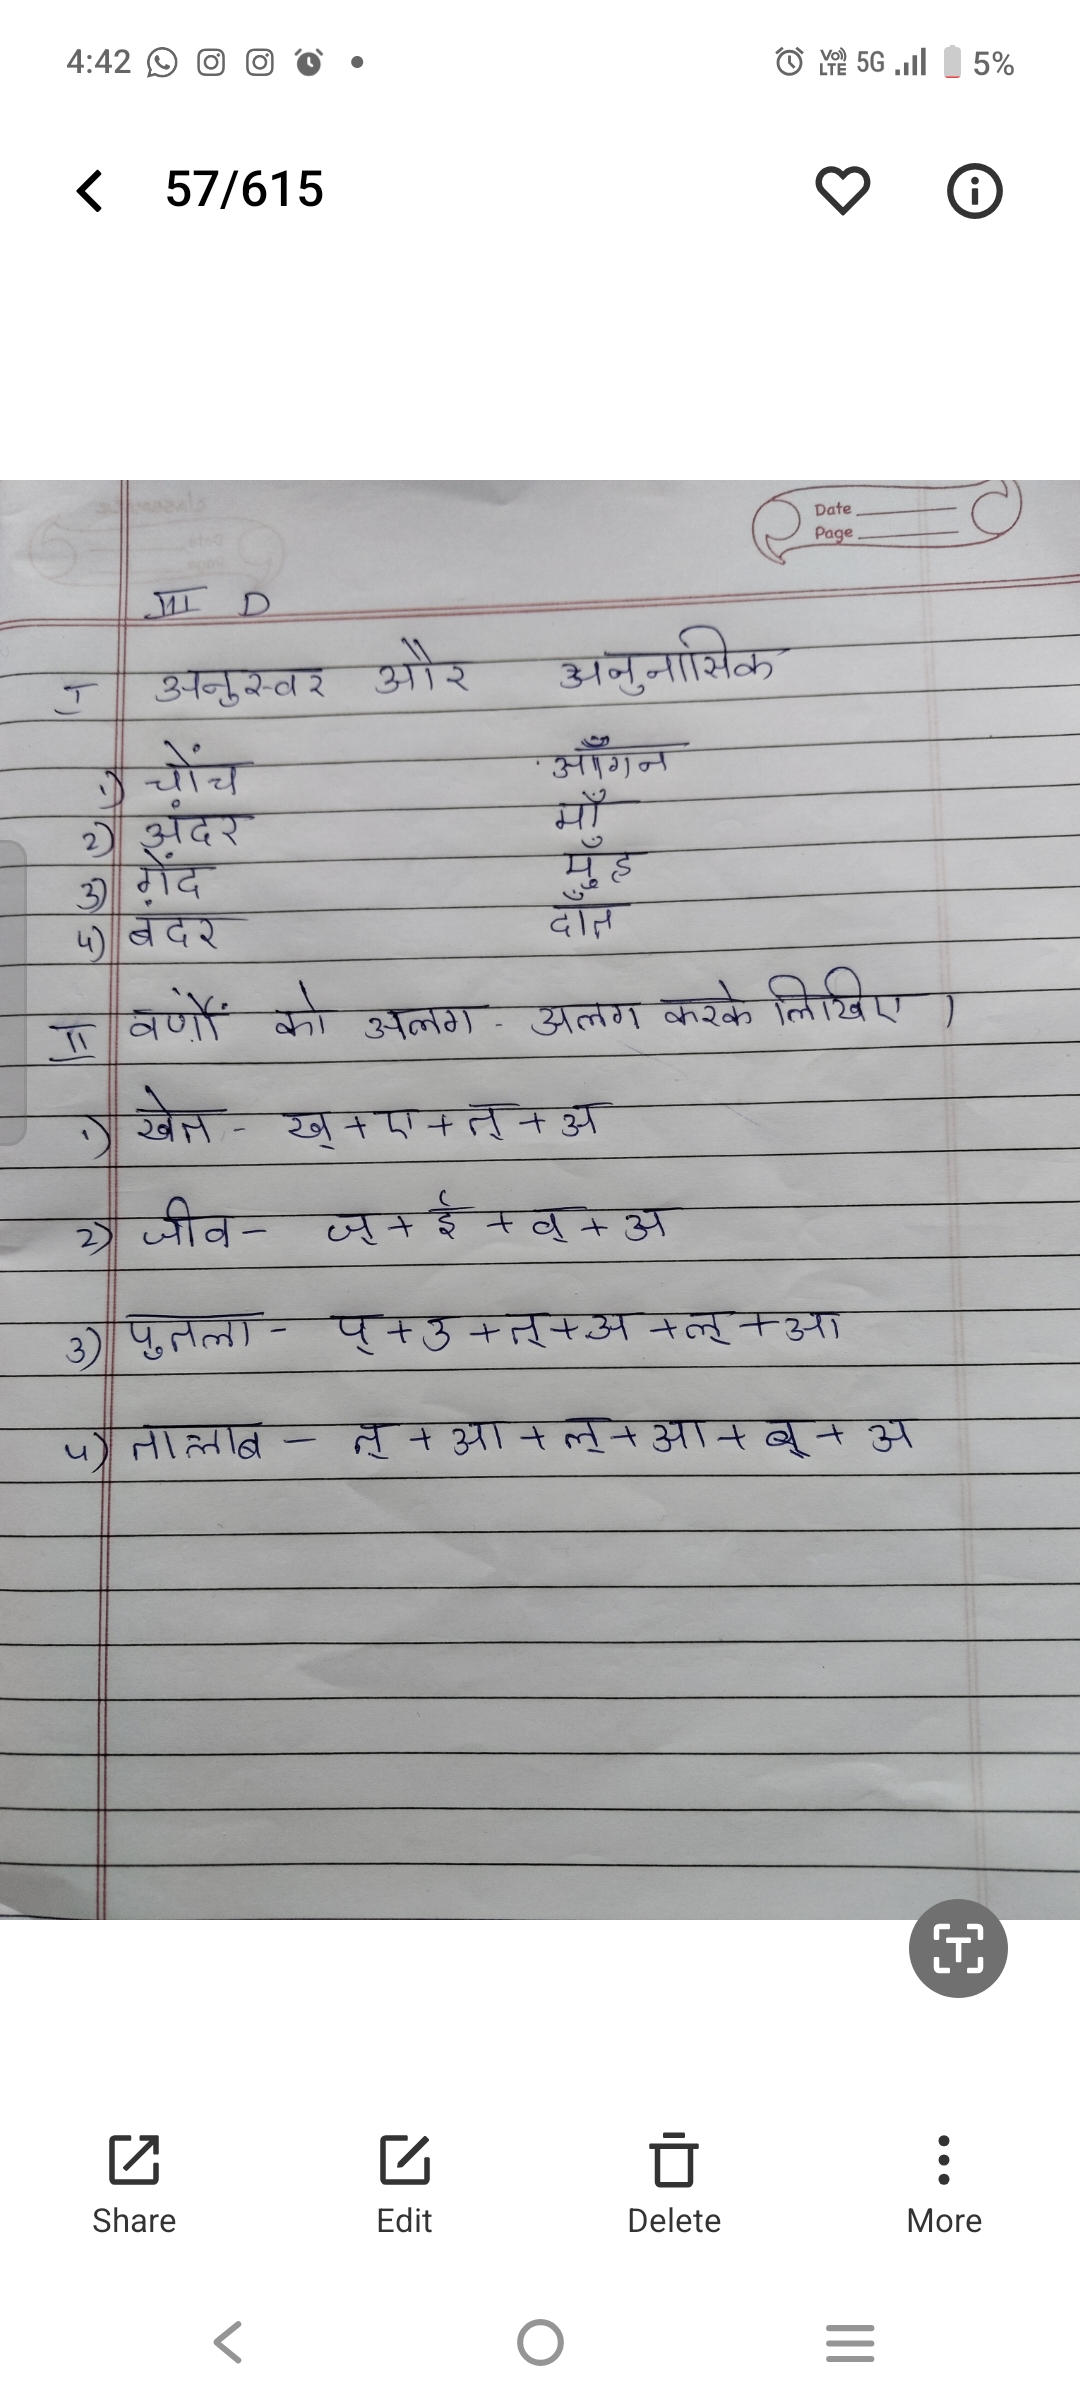 4:42 VoLTE 5G 5%
57/615
Date
Page
III D
I अनुस्वर और अनुनासिक
1) चोंच आँगन
2) अंदर माँ
3) गेंद मुँह
4) बंदर दाँत
II वर्णों को अलग - अलग करके लिखिए।
1) खेत - ख् + ए + त् + अ
2) जीव - ज् + ई + व् + अ
3) पुतला - प् + उ + त् + अ + ल् + आ
4) तालाब - त् + आ + ल् + आ + ब् + अ
T
Share Edit Delete More